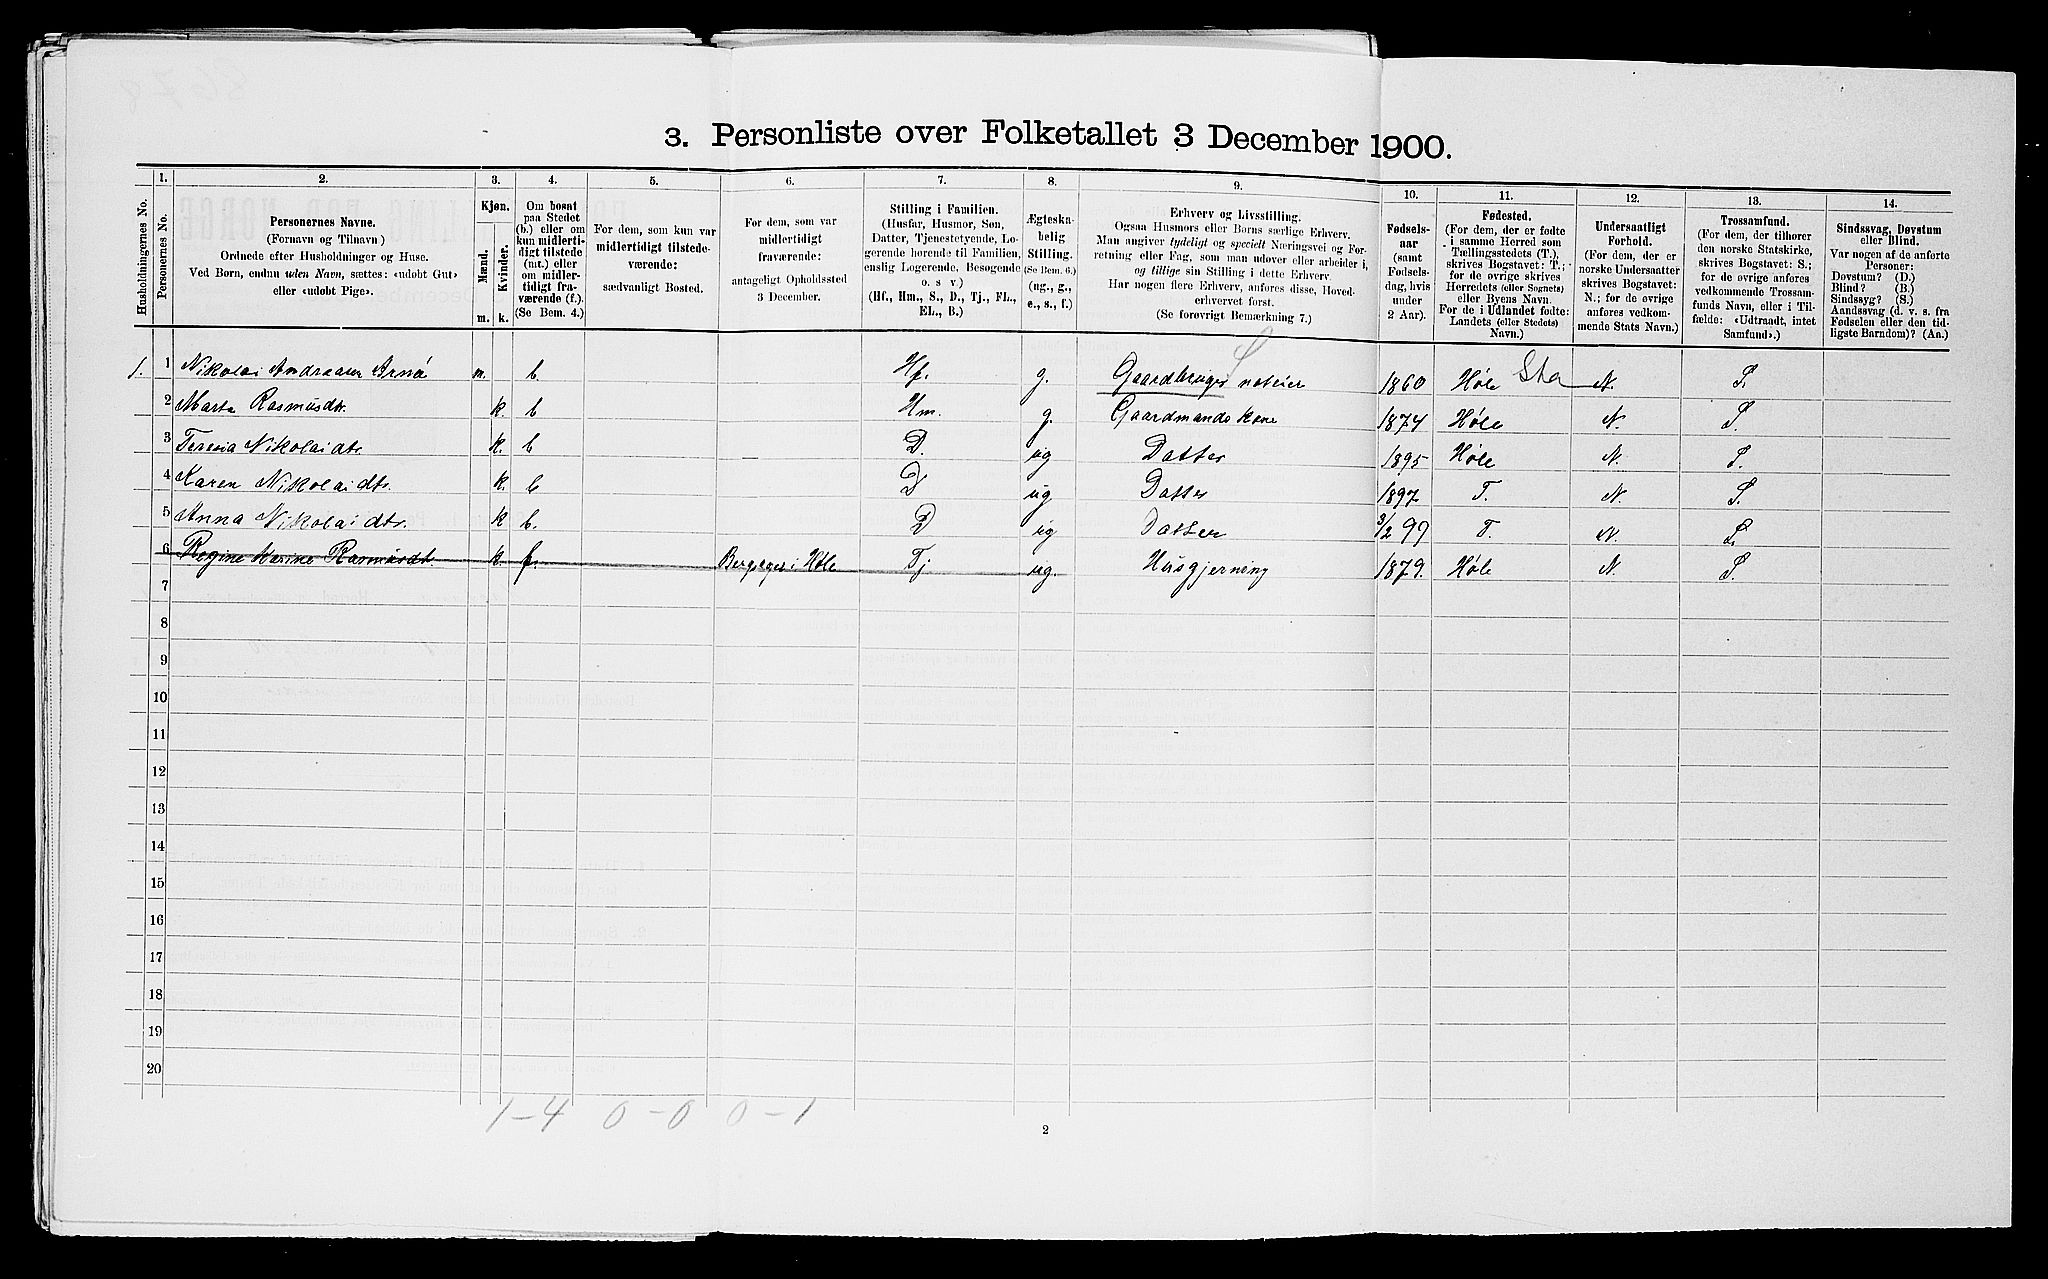 3. Personliste over Folketallet 3 December 1900.
Husholdningernes No.
1.
Personernes No.
2.
Personernes Navne.
(Fornavn og Tilnavn)
Ordnede efter Husholdninger og Huse.
Ved Børn, endnu uden Navn, sættes: «udøbt Gut»
eller «udøbt Pige».
3.
Kjøn.
Mænd.
Kvinder.
m. k.
4.
Om bosat
paa Stedet
(b.) eller om
kun midlerti-
digt tilstede
(mt.) eller
om midler-
tidigt fra-
værende (f.).
(Se Bem. 4.)
5.
For dem, som kun var
midlertidigt tilstede-
værende:
sædvanligt Bosted.
6.
For dem, som var
midlertidigt
fraværende:
antageligt Opholdssted
3 December.
7.
Stilling i Familien.
(Husfar, Husmor, Søn,
Datter, Tjenestetyende, Lo-
gerende hørende til Familien,
enslig Logerende, Besøgende
o. s v.)
(Hf., Hm., S., D., Tj., FL.,
EL., B.)
8.
Ægteska-
belig
Stilling.
(Se Bem. 6.)
(ug., g.,
e., s., f.)
9.
Erhverv og Livsstilling.
Ogsaa Husmors eller Børns særlige Erhverv.
Man angiver tydeligt og specielt Næringsvei og For-
retning eller Fag, som man udøver eller arbeider i,
og tillige sin Stilling i dette Erhverv.
Har nogen flere Erhverv, anføres disse, Hoved-
erhvervet først.
(Se forøvrigt Bemærkning 7.)
10.
Fødsels-
aar
(samt
Fødsels-
dag, hvis
under
2 Aar).
11.
Fødested.
(For dem, der er fødte
i samme Herred som
Tællingsstedets (T.),
skrives Bogstavet: T.;
for de øvrige skrives
Herredets (eller Sognets)
eller Byens Navn.
For de i Udlandet fødte:
Landets (eller Stedets)
Navn.)
12.
Undersaatligt
Forhold.
(For dem, der er
norske Undersaatter
skrives Bogstavet:
N.; for de øvrige
anføres vedkom-
mende Stats Navn.)
13.
Trossamfund.
(For dem, der tilhører
den norske Statskirke,
skrives Bogstavet: S.;
for de øvrige anføres
vedkommende Trossam-
funds Navn, eller i Til-
fælde: «Udtraadt, intet
Samfund».)
14.
Sindssvag, Døvstum
eller Blind.
Var nogen af de anførte
Personer:
Døvstum? (D.)
Blind? (B.)
Sindssyg? (S.)
Aandssvag (d. v. s. fra
Fødselen eller den tid-
ligste Barndom)? (Aa.)
1. 1 Nikolai Andreasen Arnø m. b. Hf. g. Gaardbruger S 1860 Høle Sta N. S.
2 Marta Rasmusdtr. k. b Hm. g. Gaardmandskone 1874 Høle N. S.
3 Teresia Nikolaidtr. k. b D. ug Datter 1895 Høle N. S.
4 Karen Nikolaidtr. k. b D ug Datter 1897 T. N. S.
5 Anna Nikolaidtr. k b. D ug Datter 3/2 99 T. N. S.
6 Regine Karine Rasmusdt k. f. i Høle Tj. ug. Husgjerning 1879. Høle N. S.
7
8
9
10
11
12
13
14
15
16
17
18
19
20
1-4 0-0 0-1
2